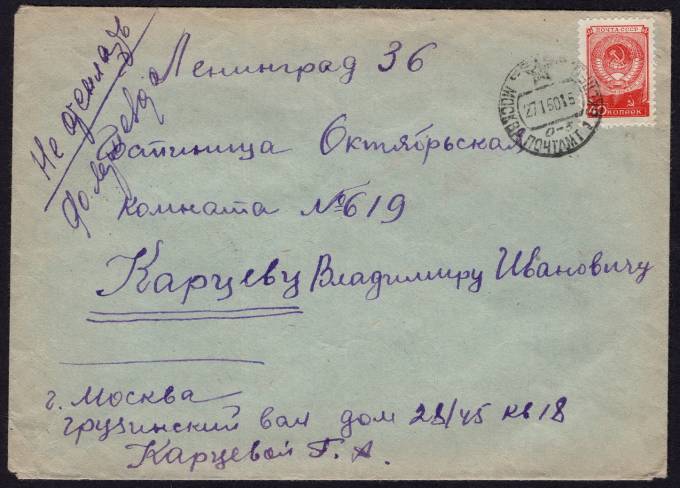 Ленинград 36
Гостиница Октябрьская
комната №619
Карцеву Владимиру Ивановичу
г. Москва
грузинский вал дом 28/45 кв 18
Карцевой Г. А.
Не
до
ПОЧТА СССР
40 КОПЕЕК
МОСКВА ПОЧТАМТ
27150